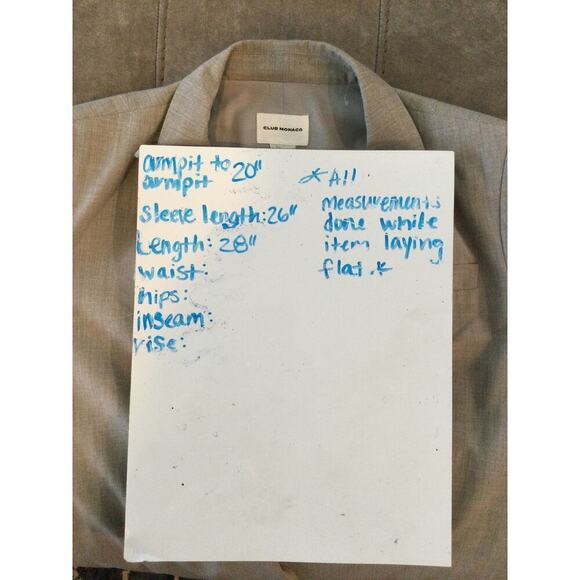 CLUB MONACO
armpit to 20"
armpit
sleeve length: 26"
Length: 28"
waist:
hips:
inseam:
rise:
*All
measurements
done while
item laying
flat.*